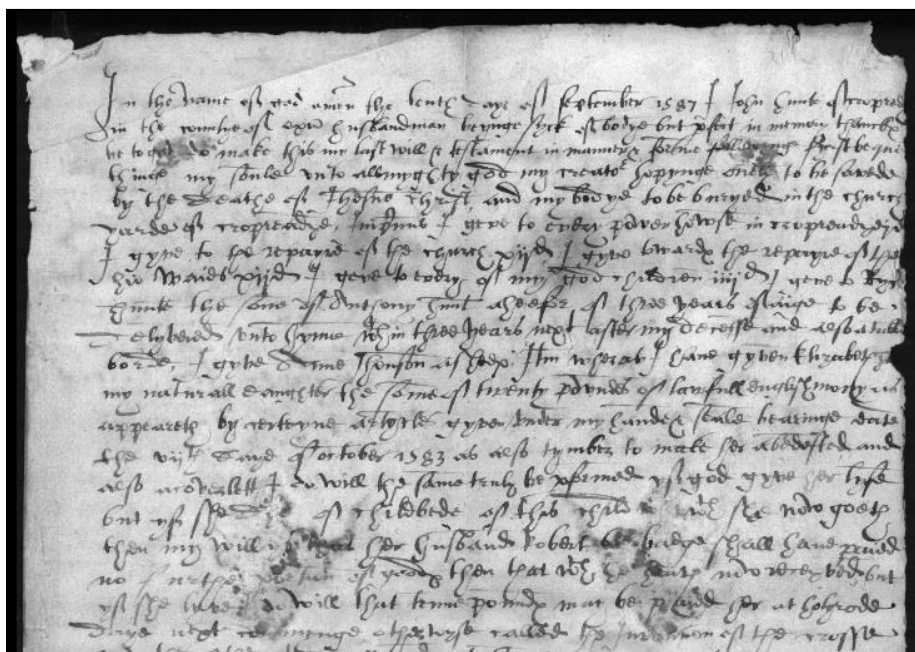 In the name of god amen the tenth daye of September 1587 I John Hunt of cropred
in the countie of oxō husbandman beynge syck of bodye but pfect in memory thanckx
be to god do make this my last will & testament in manner & forme followinge first beque
thinge my soule vnto allmyghty god my creator hoppinge onely to be saved
by the deathe of Jhesus Christ and my bodye to be buryed in the church
yarde of cropreadye. Impmis I geve to every poore howse in cropreadye
I gyve to the repayre of the church xijd I gyve towardx the repayre of the
xijd I geve to every of my god children iiijd I geve to
Hunt the sone of Antony Hunt a heefer of three years of aige to be
delyvered vnto hyme wthin three years next after my decesse and also a table
borde. I gyve Anne a sheep. Itm wheras I have gyven Elizabeth
my naturall daughter the some of twenty poundes of lawfull english mony as
appeareth by certeyne artycles gyven vnder my hande & seale bearinge date
the vijth daye of october 1583 as also tymber to make her a bedsted and
also a coverlett I do will the same truly be pformed yf god gyve her lyfe
but yf she dye of childbede of this child wch she now goeth
then my will is that her husband Robert shall have
no further portion of goodx then that wch he hath now receyved but
yf she lyve I will that tenne poundx may be payd her at holyrode
daye next comminge otherwyse called the of the crosse